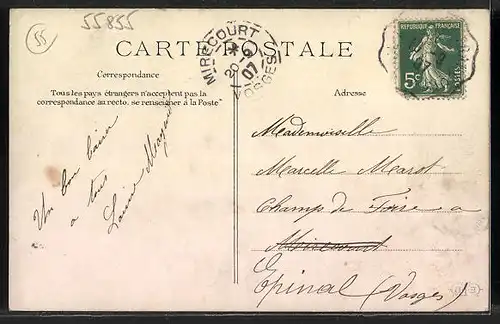 55
55855
CARTE POSTALE
MIRECOURT
20 -9
07
VOSGES
REPUBLIQUE FRANÇAISE
5c
POSTES
Correspondance
Tous les pays étrangers n'acceptent pas la
correspondance au recto. se renseigner à la Poste"
Adresse
Un bon baiser
a tous
Mademoiselle
Marcelle Marot
Champ de Foire a
Mirecourt
Epinal (Vosges)